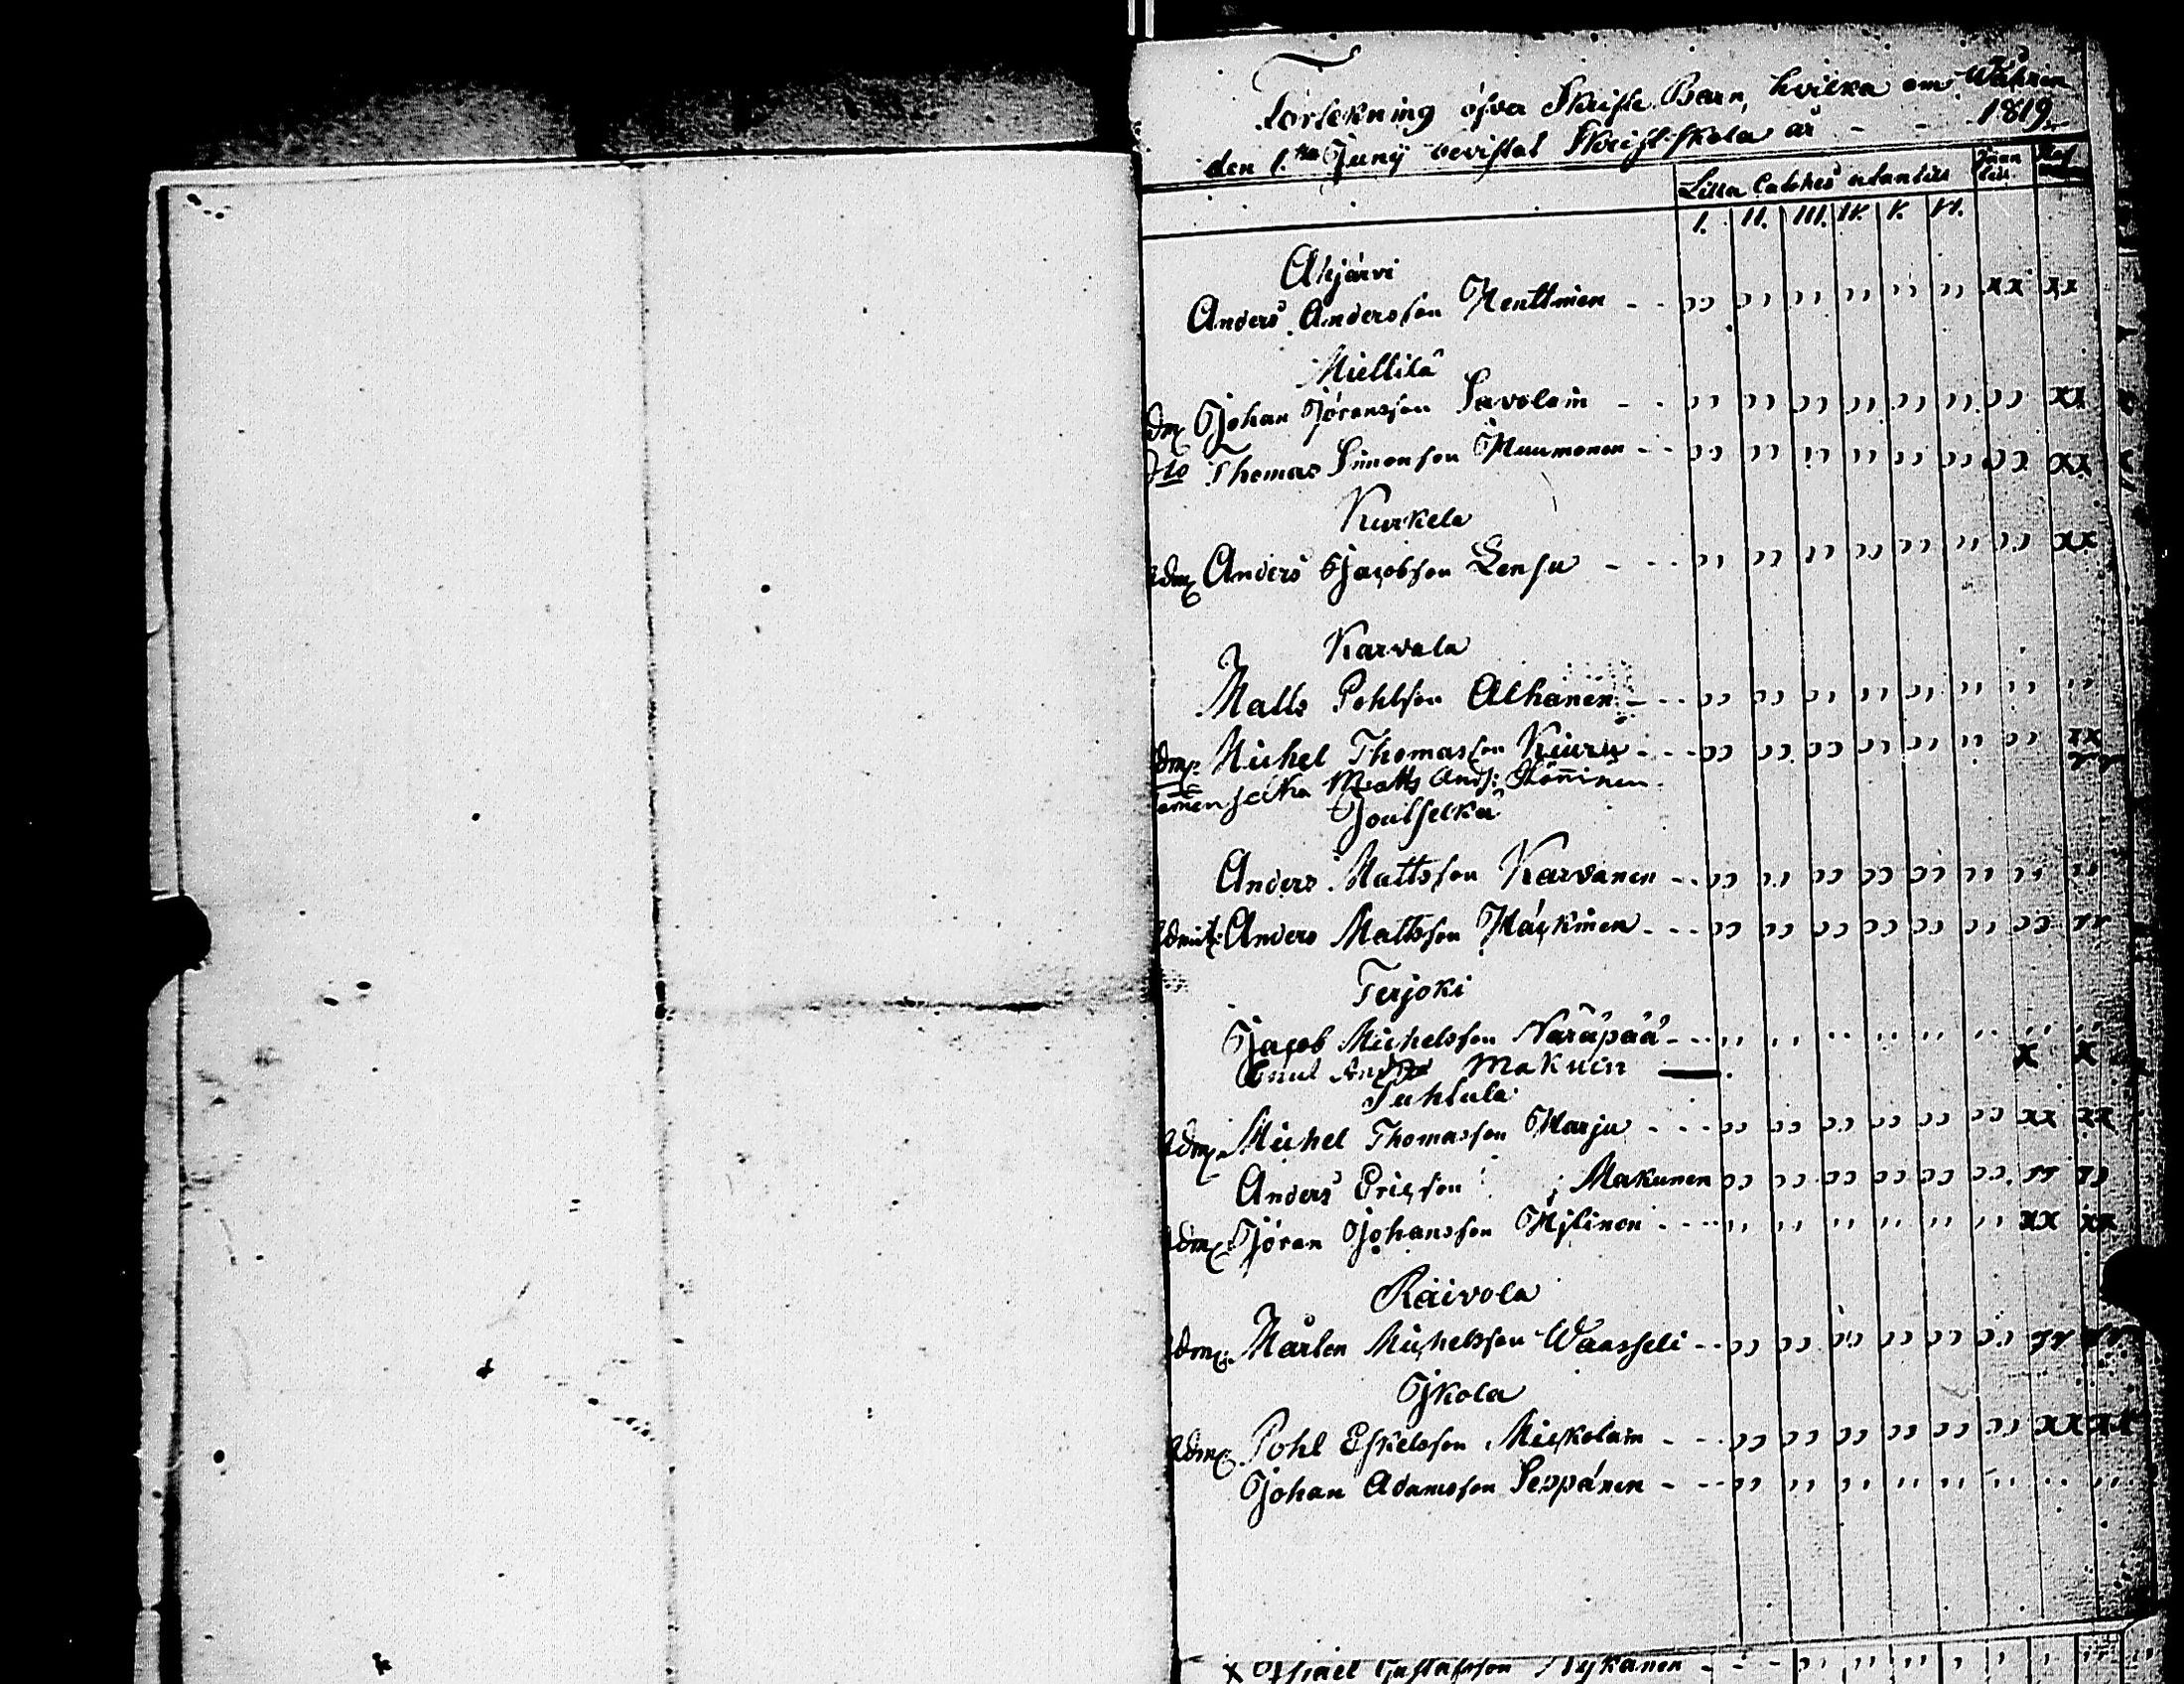 Förtekning öfver Skrifte Barn, hvilka om Wåhren
den 1.sta Junij bevistat Skriftskola år - - 1819
Lilla Catches utantill Innan till
I. II. III. IV. V. VI.
Ahjärvi
Anders Andersson Henttinen - - ,, ,, ,, ,, ,, ,, xx xx
Miellilä
Adm Johan Jöransson Savolain - - ,, ,, ,, ,, ,, ,, ,, xx
Dto Thomas Simonson Muumonen - - ,, ,, ,, ,, ,, ,, ,, xx
Kurkela
Adm Anders Jacobson Lensu - - - ,, ,, ,, ,, ,, ,, ,, xx
Karvala
Matts Pohlson Alhanen - - - ,, ,, ,, ,, ,, ,, ,, ,,
Adm: Michel Thomasson Kiuru - - - ,, ,, ,, ,, ,, ,, ,, xx
Matts And:
Joutselkä
Anders Mattsson Karvanen - - ,, ,, ,, ,, ,, ,, ,, ,,
Admit: Anders Mattsson Häckinen - - - ,, ,, ,, ,, ,, ,, ,, ,,
Terjoki
Jacob Michelsson Naräpää - - - ,, ,, ,, ,, ,, ,, ,, ,,
Makuin — x x
Tuhlula
Adm: Michel Thomasson Harju - - - ,, ,, ,, ,, ,, ,, xx xx
Anders Ericson Makunen ,, ,, ,, ,, ,, ,, ,, ,,
Adm: Jöran Johansson Hylinen - - - ,, ,, ,, ,, ,, ,, xx xx
Raivola
Adm: Mårten Michelsson Waasseli - - ,, ,, ,, ,, ,, ,, ,, ,,
Ikola
Adm: Pohl Eskelsson Mickolain - - - ,, ,, ,, ,, ,, ,, xx xx
Johan Adamsson Seppänen - - - ,, ,, ,, ,, ,, ,, ,, ,,
x Israel Gustafsson Nykänen - - - ,, ,, ,, ,, ,, ,,